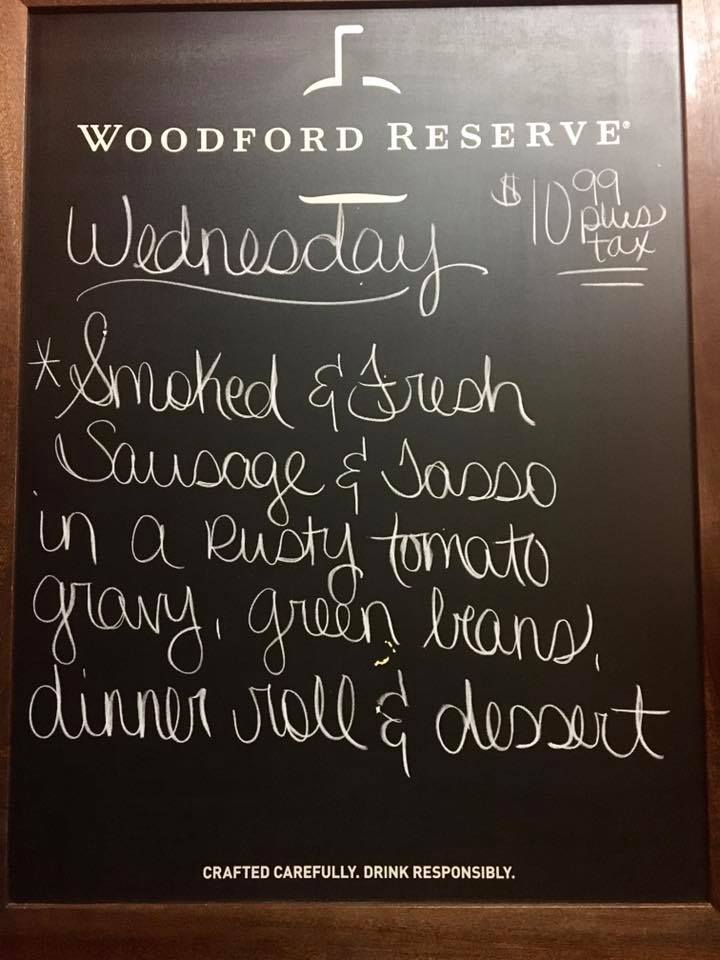 WOODFORD RESERVE®
$10 99 plus tax
Wednesday
*Smoked & Fresh
Sausage & Tasso
in a Rusty tomato
gravy, green beans,
dinner roll & dessert
CRAFTED CAREFULLY. DRINK RESPONSIBLY.